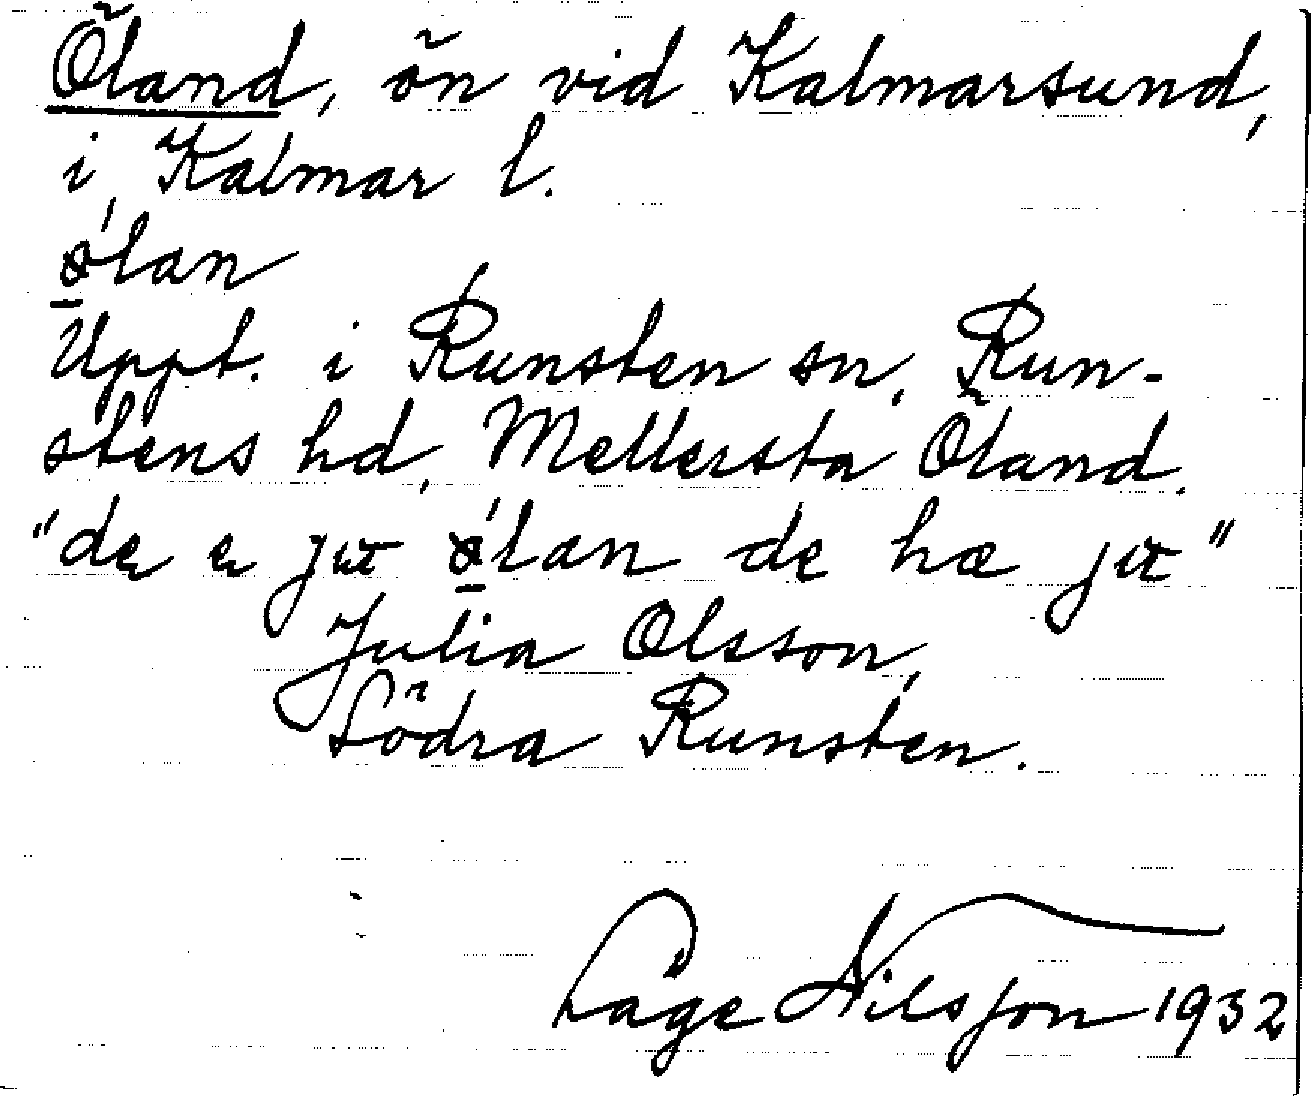 Öland, ön vid Kalmarsund,
i Kalmar l.
ø̲ˈlan
Uppt. i Runsten sn, Run-
stens hd, Mellersta Öland.
"de e ø̲ˈlan de hæ"
Julia Olsson,
Södra Runsten.
Lage Nilsson 1932